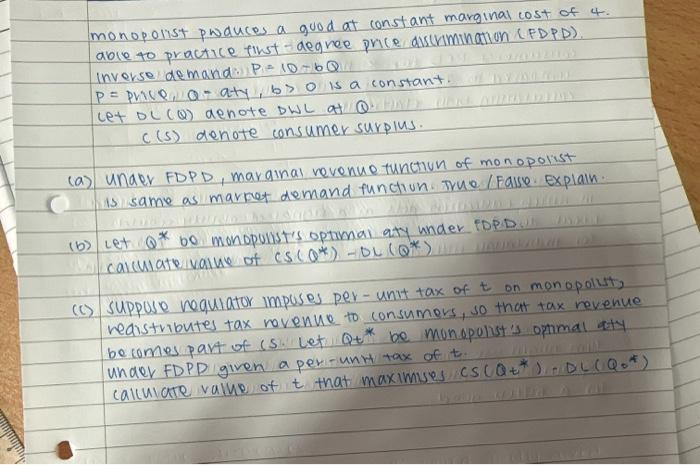 monopolist produces a good at constant marginal cost of 4.
able to practice first-degree price discrimination (FDPD).
Inverse demand: P = 10 - bQ
P = price, Q = qty, b > 0 is a constant.
Let DL(Q) denote DWL at Q.
C(S) denote consumer surplus.
(a) under FDPD, marginal revenue function of monopolist
is same as market demand function. True / False. Explain.
(b) Let Q* be monopolist's optimal qty under FDPD.
calculate value of CS(Q*) - DL(Q*)
(c) suppose regulator imposes per-unit tax of t on monopolist,
redistributes tax revenue to consumers, so that tax revenue
becomes part of CS. Let Qt* be monopolist's optimal qty
under FDPD given a per-unit tax of t.
calculate value of t that maximises CS(Qt*) - DL(Qo*)